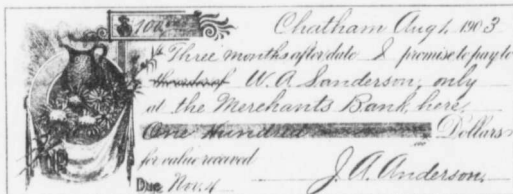 $ 100 Chatham Aug 1, 1903
Three months after date I promise to pay to
the order of W. A. Sanderson, only
at the Merchants Bank, here,
One Hundred Dollars
for value received
Due Nov. 4 J. A. Anderson.